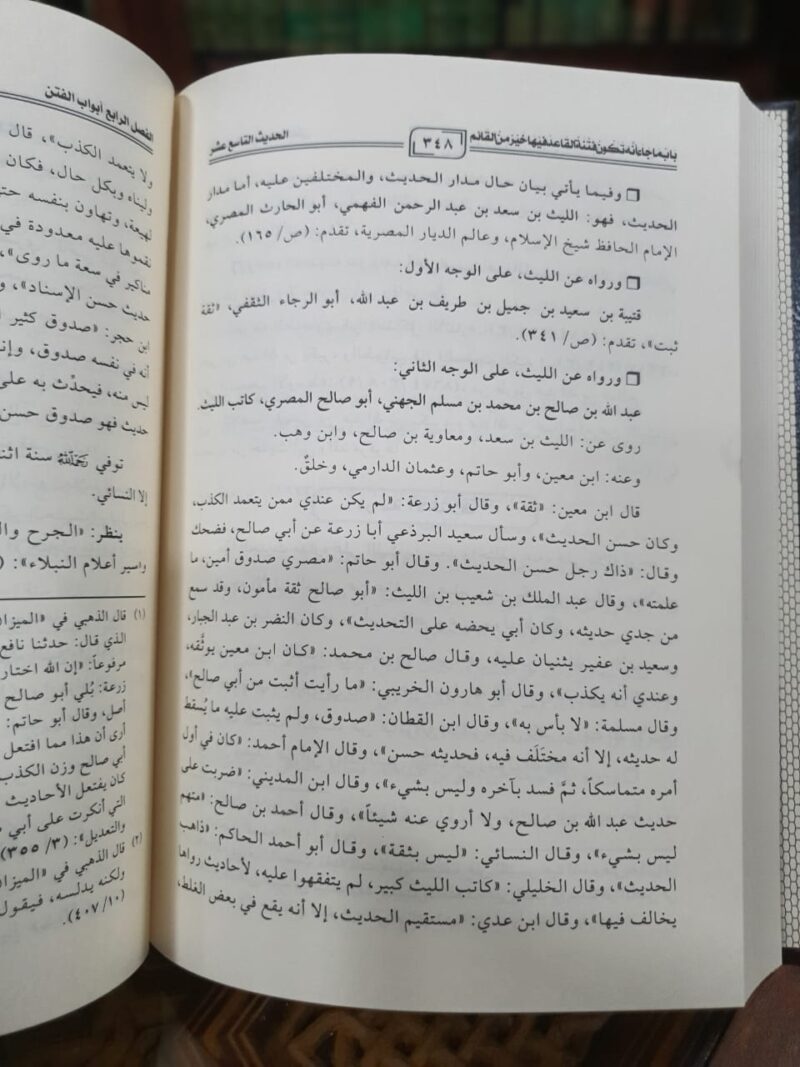 باب ما جاء أنه تكون فتنة القاعد فيها خير من القائم
٣٤٨
الحديث التاسع عشر
❒ وفيما يأتي بيان حال مدار الحديث، والمختلفين عليه، أما مدار
الحديث، فهو: الليث بن سعد بن عبد الرحمن الفهمي، أبو الحارث المصري،
الإمام الحافظ شيخ الإسلام، وعالم الديار المصرية، تقدم: (ص/ ١٦٥).
❒ ورواه عن الليث، على الوجه الأول:
قتيبة بن سعيد بن جميل بن طريف بن عبد الله، أبو الرجاء الثقفي، «ثقة
ثبت»، تقدم: (ص/ ٣٤١).
❒ ورواه عن الليث، على الوجه الثاني:
عبد الله بن صالح بن محمد بن مسلم الجهني، أبو صالح المصري، كاتب الليث.
روى عن: الليث بن سعد، ومعاوية بن صالح، وابن وهب.
وعنه: ابن معين، وأبو حاتم، وعثمان الدارمي، وخلقٌ.
قال ابن معين: «ثقة»، وقال أبو زرعة: «لم يكن عندي ممن يتعمد الكذب،
وكان حسن الحديث»، وسأل سعيد البرذعي أبا زرعة عن أبي صالح، فضحك
وقال: «ذاك رجل حسن الحديث». وقال أبو حاتم: «مصري صدوق أمين، ما
علمته»، وقال عبد الملك بن شعيب بن الليث: «أبو صالح ثقة مأمون، وقد سمع
من جدي حديثه، وكان أبي يحضه على التحديث»، وكان النضر بن عبد الجبار،
وسعيد بن عفير يثنيان عليه، وقال صالح بن محمد: «كان ابن معين يوثِّقه،
وعندي أنه يكذب»، وقال أبو هارون الخريبي: «ما رأيت أثبت من أبي صالح»،
وقال مسلمة: «لا بأس به»، وقال ابن القطان: «صدوق، ولم يثبت عليه ما يُسقط
له حديثه، إلا أنه مختَلَف فيه، فحديثه حسن»، وقال الإمام أحمد: «كان في أول
أمره متماسكاً، ثمَّ فسد بآخره وليس بشيء»، وقال ابن المديني: «ضربت على
حديث عبد الله بن صالح، ولا أروي عنه شيئاً»، وقال أحمد بن صالح: «متهم
ليس بشيء»، وقال النسائي: «ليس بثقة»، وقال أبو أحمد الحاكم: «ذاهب
الحديث»، وقال الخليلي: «كاتب الليث كبير، لم يتفقهوا عليه، لأحاديث رواها
يخالف فيها»، وقال ابن عدي: «مستقيم الحديث، إلا أنه يقع في بعض الغلط،
الفصل الرابع أبواب الفتن
ولا يتعمد الكذب»، قال
وليناه وبكل حال، فكان
لهيعة، وتهاون بنفسه حتى
نقموها عليه معدودة في
مناكير في سعة ما روى»،
حديث حسن الإسناد»، و
ابن حجر: «صدوق كثير
أنه في نفسه صدوق، وإن
ليس منه، فيحدِّث به على
حديث فهو صدوق حسن
توفي رَحِمَهُ اللَّهُ سنة اثن
إلا النسائي.
ينظر: «الجرح وال
و«سير أعلام النبلاء»: (
(١) قال الذهبي في «الميزا
الذي قال: حدثنا نافع
مرفوعاً: «إن الله اختار
زرعة: بُلي أبو صالح
أصل، وقال أبو حاتم:
أرى أن هذا مما افتعل
أبي صالح وزن الكذب
كان يفتعل الأحاديث
التي أنكرت على أبي
والتعديل»: (٣/ ٣٥٥)
(٢) قال الذهبي في «الميزا
ولكنه يدلسه، فيقول
(١٠/ ٤٠٧).